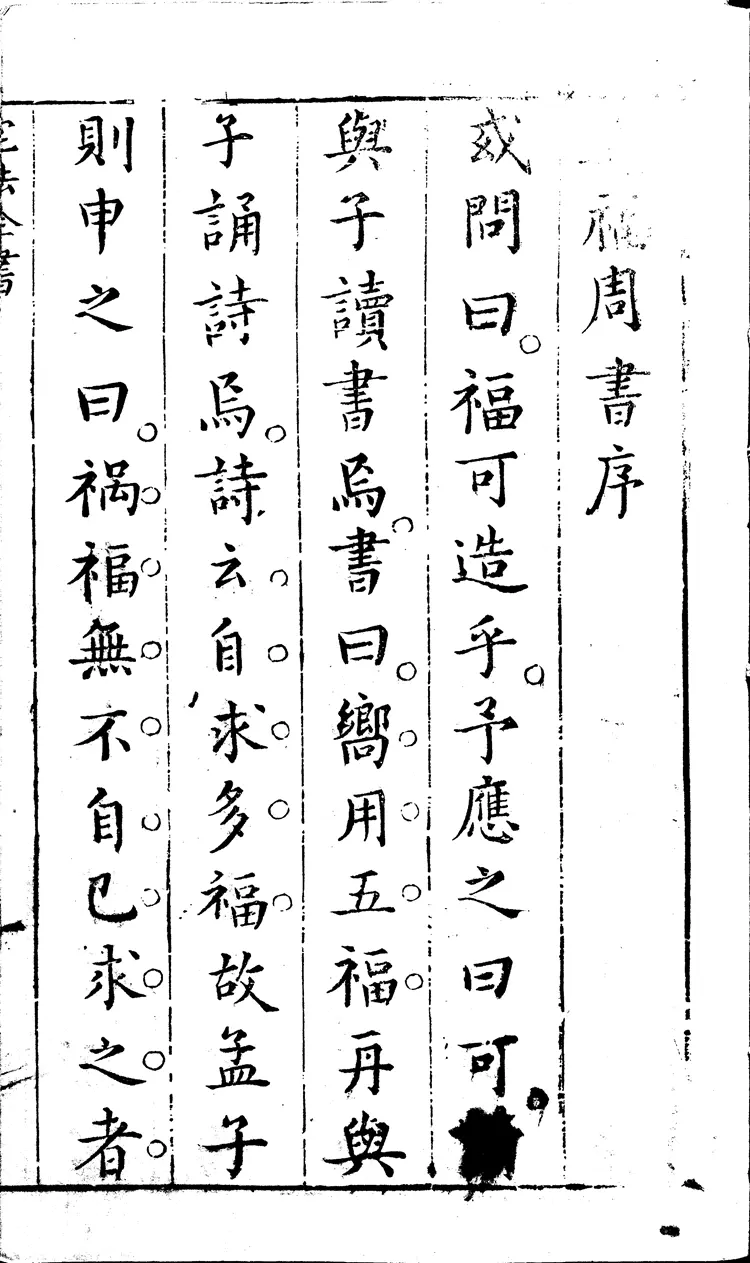 周書序
或問曰。福可造乎。予應之曰可。
與子讀書焉。書曰。嚮用五福。再與
子誦詩焉。詩云自求多福故孟子
則申之曰。禍福無不自己求之者